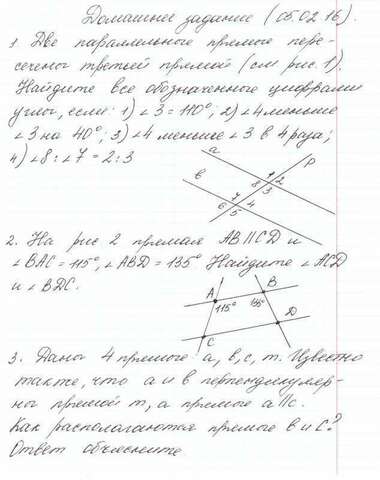 Домашнее задание (05.02.16).
1 Две параллельные прямые пере-
сечены третьей прямой (см рис. 1).
Найдите все обозначенные цифрами
углы, если: 1) ∠3 = 110°; 2) ∠4 меньше
∠3 на 40°; 3) ∠4 меньше ∠3 в 4 раза;
4) ∠8 : ∠7 = 2 : 3
a
p
в
8 1 2
3
7
6 5 4
2. На рис 2 прямая AB||CD и
∠BAC = 115°, ∠ABD = 135° Найдите ∠ACD
и ∠BDC.
A B
115° 135°
D
C
3. Даны 4 прямые a, в, c, m. Известно
также, что a и в перпендикуляр-
ны прямой m, а прямые a||c.
Как располагаются прямые в и c?
Ответ объясните